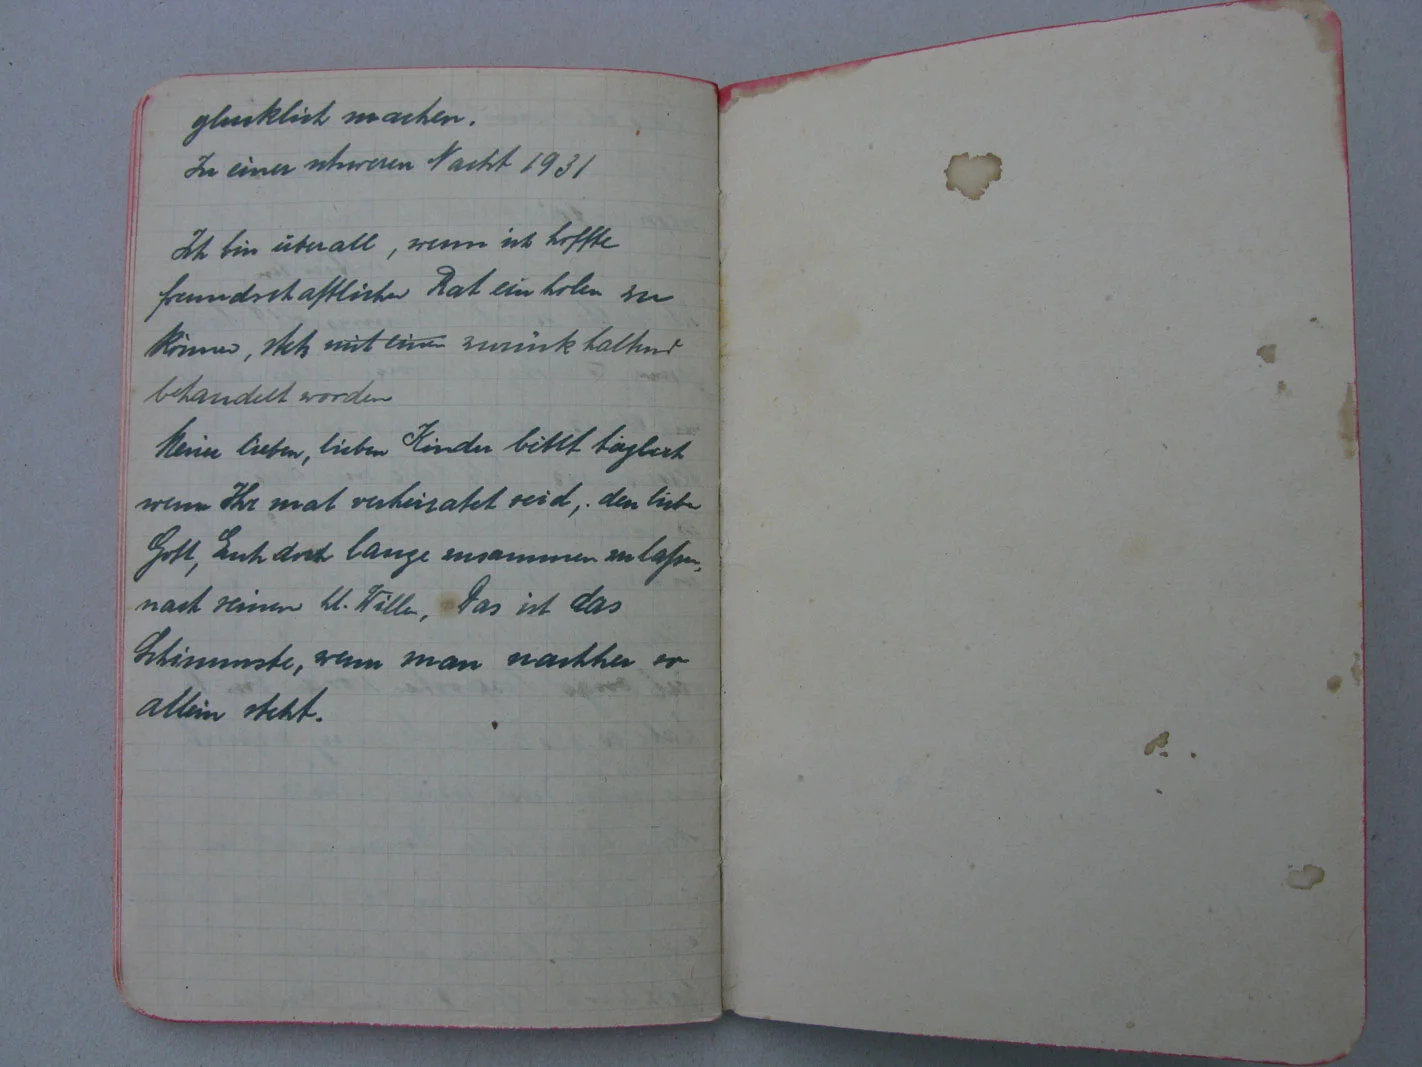 glücklich machen.
In einer schweren Nacht 1931
Ich bin überall, wenn ich hoffte
freundschaftlichen Rat einholen zu
können, stets mit einer zurückhaltend
behandelt worden
Meine lieben, lieben Kinder bittet täglich
wenn Ihr mal verheiratet seid, den lieben
Gott, Euch doch lange zusammen zu lassen,
nach seinem hl. Willen, Das ist das
Schimmste, wenn man nachher so
allein steht.